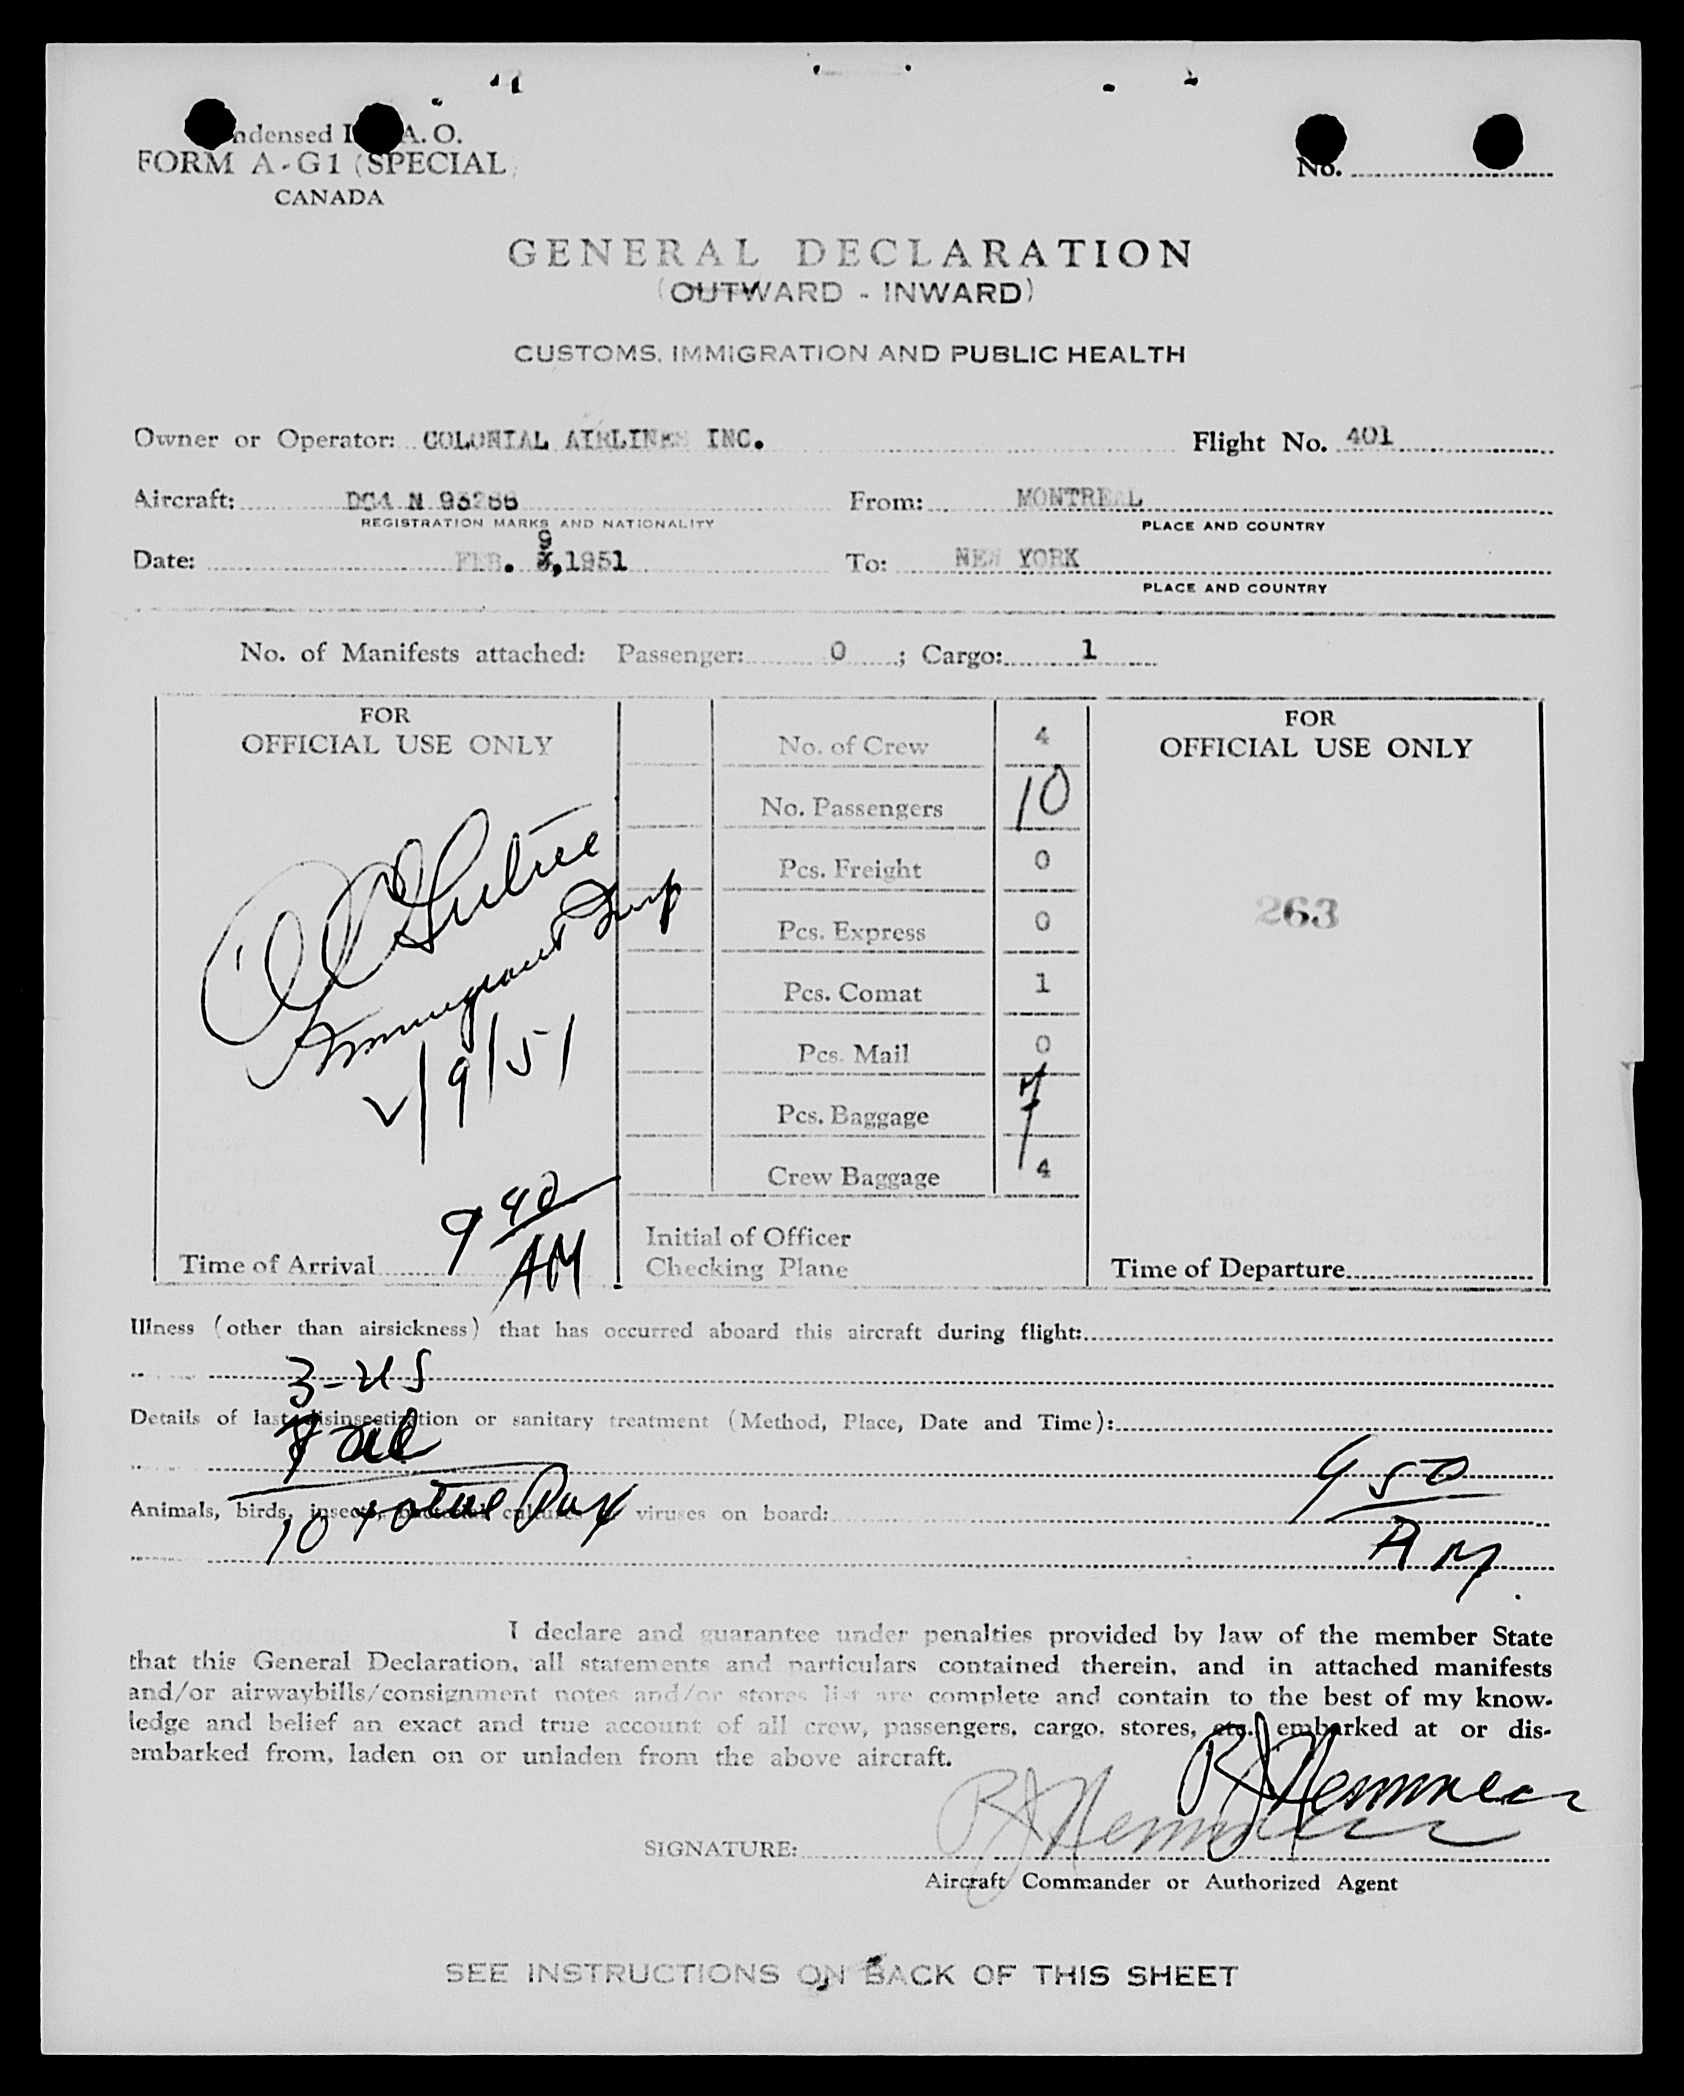 ndensed I A. O. No.
FORM A-G1 (SPECIAL)
CANADA
GENERAL DECLARATION
(OUTWARD - INWARD)
CUSTOMS, IMMIGRATION AND PUBLIC HEALTH
Owner or Operator: COLONIAL AIRLINES INC. Flight No. 401
Aircraft: DC4 N 93266 From: MONTREAL
REGISTRATION MARKS AND NATIONALITY PLACE AND COUNTRY
9
Date: FEB. ,1951 To: NEW YORK
PLACE AND COUNTRY
No. of Manifests attached: Passenger: 0 ; Cargo: 1
FOR
OFFICIAL USE ONLY
Immigrant Insp
2/9/51
9 40
AM
Time of Arrival
No. of Crew 4
No. Passengers 10
Pcs. Freight 0
Pcs. Express 0
Pcs. Comat 1
Pcs. Mail 0
Pcs. Baggage
Crew Baggage 4
Initial of Officer
Checking Plane
FOR
OFFICIAL USE ONLY
263
Time of Departure
Illness (other than airsickness) that has occurred aboard this aircraft during flight:
3-US
Details of last disinsectization or sanitary treatment (Method, Place, Date and Time):
9 50
Animals, birds, insects, bacterial cultures viruses on board:
10 total Pax
AM
I declare and guarantee under penalties provided by law of the member State
that this General Declaration, all statements and particulars contained therein, and in attached manifests
and/or airwaybills/consignment notes and/or stores list are complete and contain to the best of my know-
ledge and belief an exact and true account of all crew, passengers, cargo, stores, etc., embarked at or dis-
embarked from, laden on or unladen from the above aircraft.
SIGNATURE:
Aircraft Commander or Authorized Agent
SEE INSTRUCTIONS ON BACK OF THIS SHEET